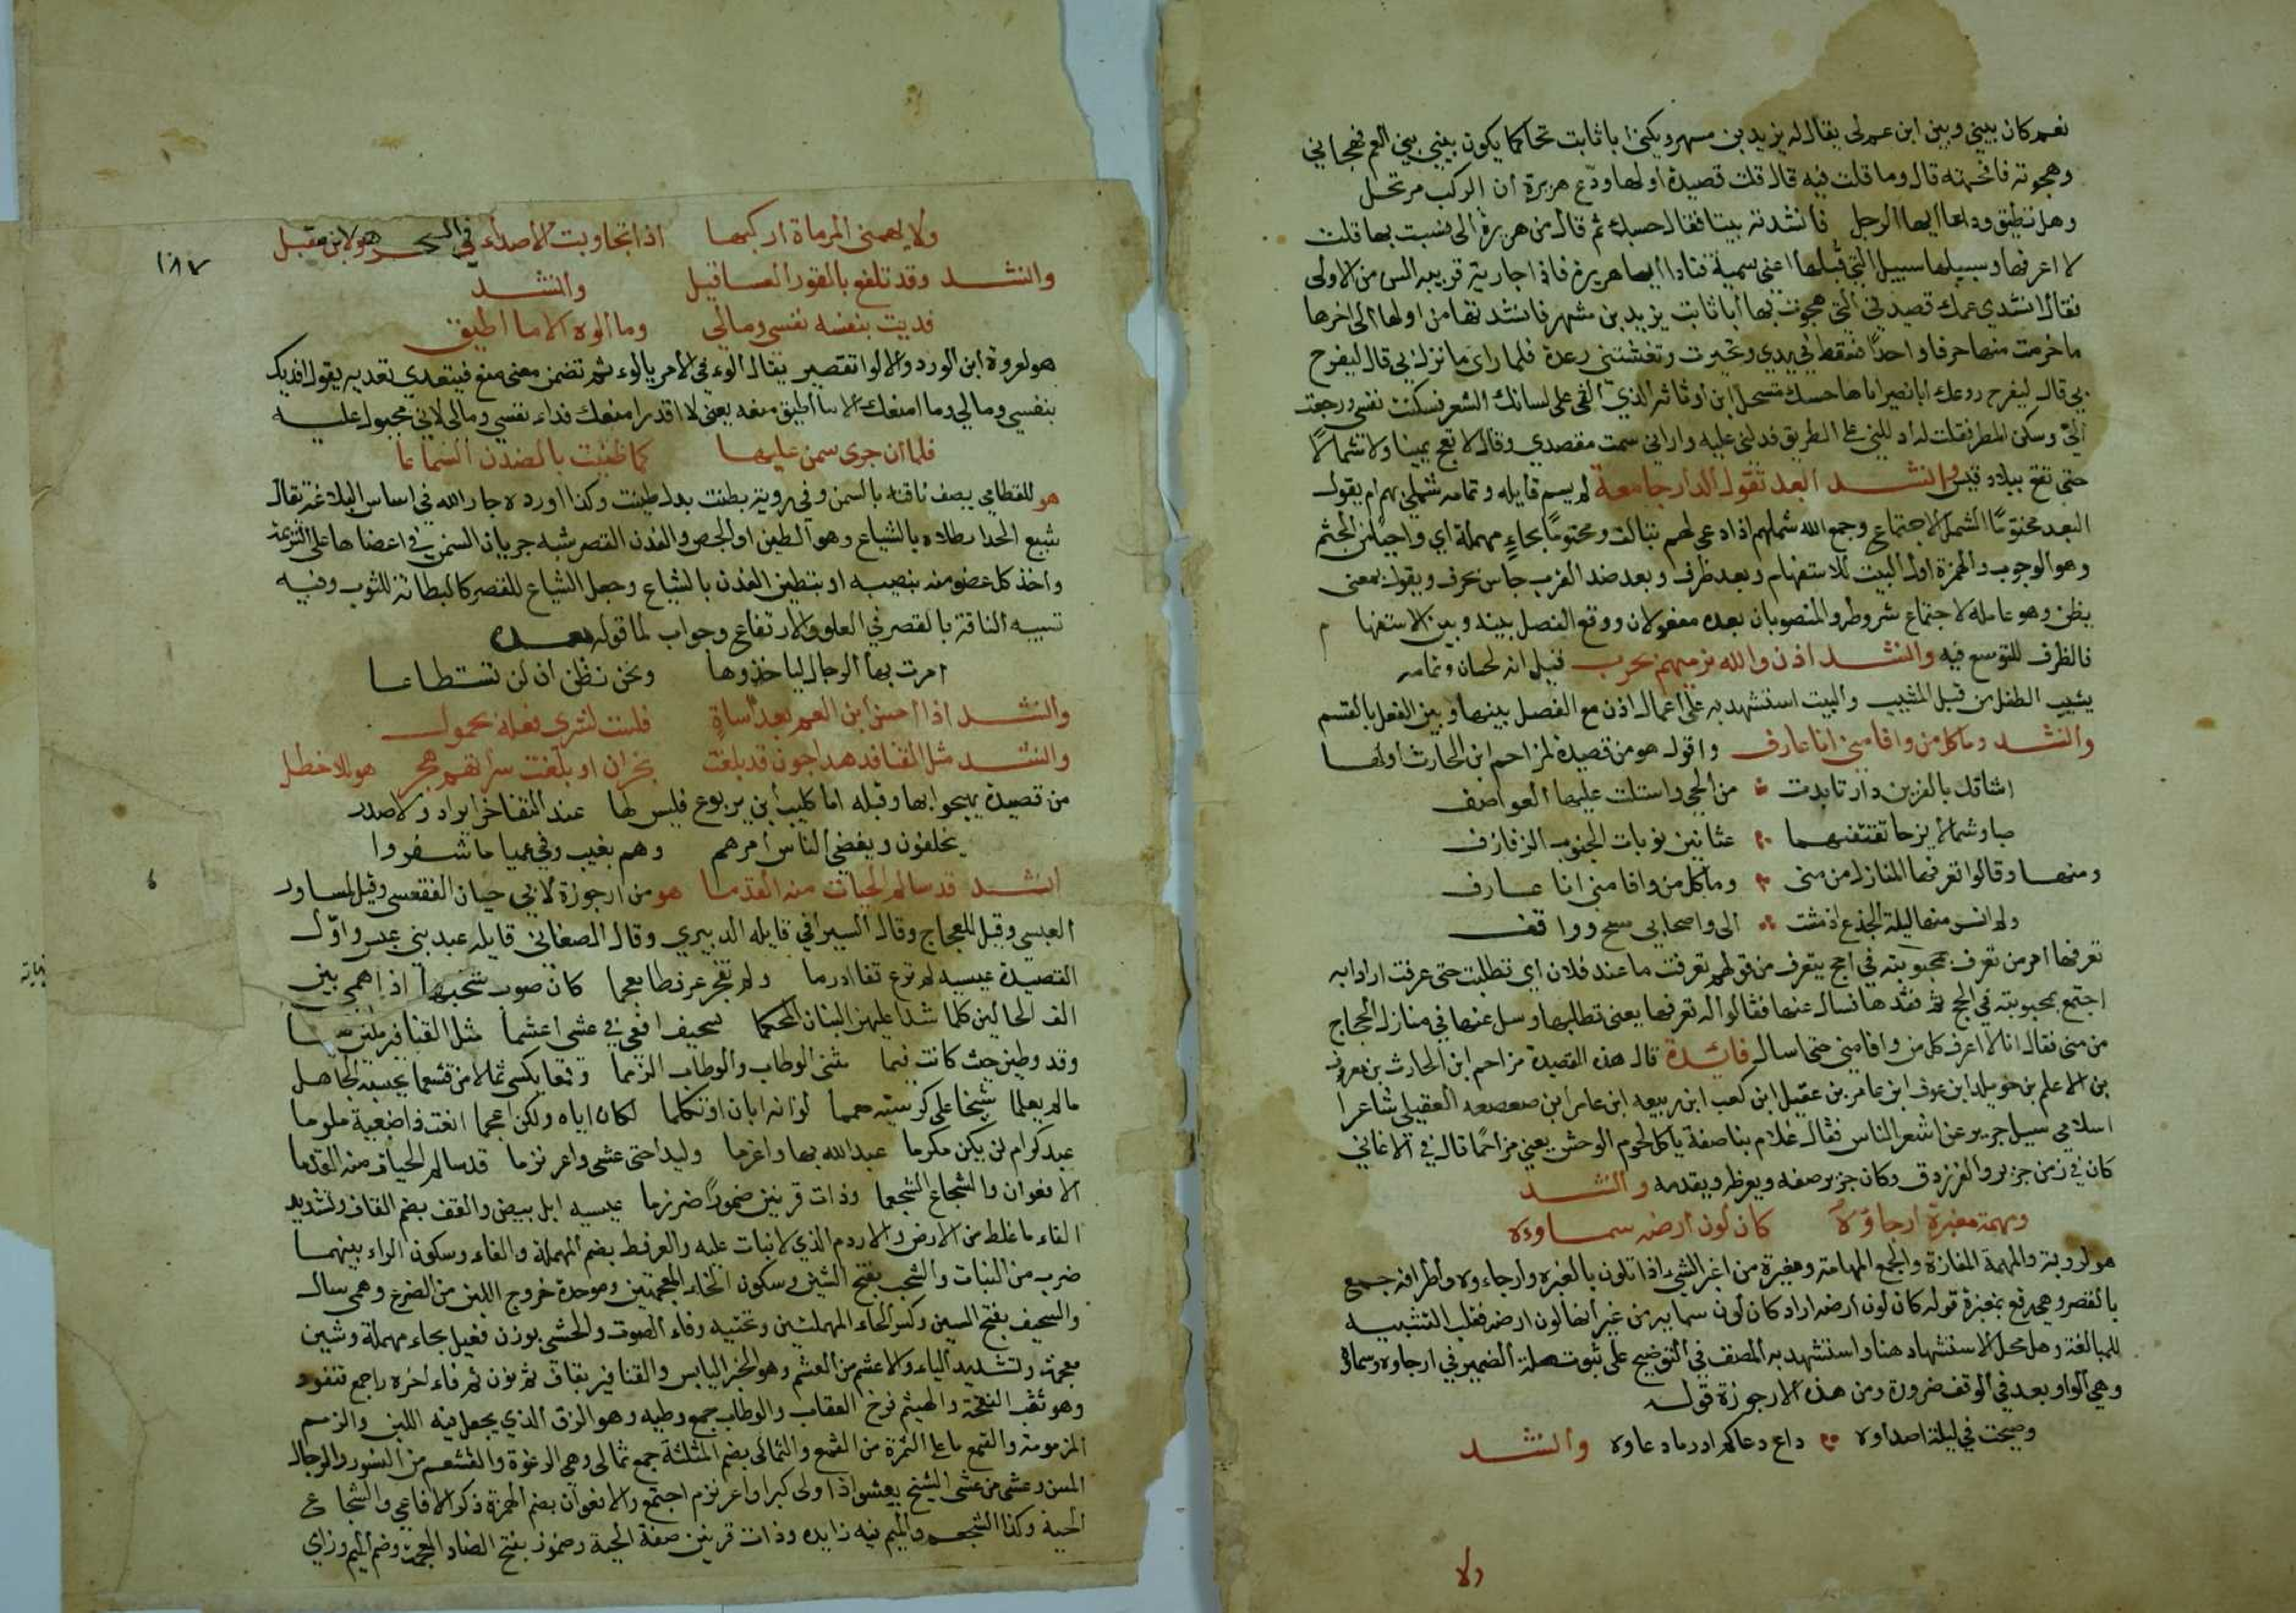 نعم كان بيني وبين ابن عم لي يقال له يزيد بن مسهر ويكنى ابا ثابت تحاكما يكون بيني بين العم فهجاني
وهجوته فافحمته قال وما قلت فيه قال قلت قصيدة اولها ودّع هريرة ان الركب مرتحل
وهل تطيق وداعا ايها الرجل فانشدته بيتا فقال حسبك ثم قال من هريرة التي نسبت بها قلت
لا اعرفها وسبيلها سبيل التي قبلها اعني سمية فنادا ايا هريرة فاذا جارية قريبه السن من الاولى
فقال انشدي عمك قصيدتي التي هجوت بها ابا ثابت يزيد بن مسهر فانشدتها من اولها الى اخرها
ما خرمت منها حرفا واحدا فسقط في يدي وتحيرت وتغشتني رعدة فلما راى ما نزل بي قال ليفرح
بي قال ليفرح روعك ابا نصير انا هاجسك مسحل ابن اوثاثه الذي القى على لسانك الشعر فسكنت نفسي ورجعت
اليّ وسكن المطر فقلت له ادللني على الطريق فدلني عليه واراني سمت مقصدي وقال لا تعج يمينا ولا شمالا
حتى تقع ببلاد قيس وانشد ابعد تقول الدار جامعة لم يسم قايله وتمامه شملي بهم ام يقول
البعد محتومًا الشمل الاجتماع وجمع الله شملهم اذا دعى لهم بتالف ومحتومًا بحاء مهملة اي واجبا من الحتم
وهو الوجوب والهمزة اول البيت للاستفهام وبعد ظرف وبعد ضد القرب جاس بحرف ويقول بمعنى
يظن وهو عامله لاجتماع شروطه والمنصوبان بعده مفعولان ووقع الفصل بينه وبين الاستفها م
فالظرف للتوسع فيه وانشد اذن والله نرميهم بحرب قيل انه لحسان وتمامه
يشيب الطفل من قبل المشيب والبيت استشهد به على اعمال اذن مع الفصل بينها وبين الفعل بالقسم
وانشد وما كل من وافا منى انا عارف واقول هو من قصيدة لمزاحم ابن الحارث اولها
اشاقك بالغرين دار تابدت من الحي واستلت عليها العواصف
صبا وشمال نيرجا تقتفيهما عثانين نوبات الجنوب الزفازف
ومنها وقالوا تعرفها المنازل من منى وما كل من وافا منى انا عارف
ولم انس منها ليلة الجذع اذ مشت الى واصحابي سنح وواقف
تعرفها امر من تعرف بمحبوبته في الحج يتعرف من قولهم تعرفت ما عند فلان اي تطلبت حتى عرفت اراد انه
اجتمع بمحبوبته في الحج ثم فقدها فسال عنها فقالوا له تعرفها يعني تطلبها وسل عنها في منازل الحجاج
من منى فقال انا لا اعرف كل من وافا منى حتى اسال فائدة قال هذه القصيدة مزاحم ابن الحارث بن معروف
بن الاعلم بن خويلد ابن عوف ابن عامر بن عقيل ابن كعب ابن ربيعه ابن عامر ابن صعصعه العقيلي شاعرا
اسلامي سيل جرير عن اشعر الناس فقال غلام بناصفة ياكل لحوم الوحش يعني مزاحمًا قال في الاغاني
كان في زمن جرير والفرزدق وكان جرير يصفه ويعرظه ويقدمه وانشد
ومهمة مغبرة ارجاؤه كان لون ارضه سماوه
هو لروبة والمهمة المفازة والجمع المهامة ومغبرة من اغبر الشيء اذا تلون بالغبره وارجاءوه اطرافه جمع
بالقصر وهي رفع بمغبرة قوله كان لون ارضه اراد كان لون سمايه من غبرتها لون ارضه فقلب التشبيه
للمبالغة وهل محل الاستشهاد هنا واستشهد به المصنف في التوضيح على ثبوت صلة الضمير في ارجاوه وسماوه
وهي الواو بعد في الوقف ضرورة ومن هذه الارجوزة قوله
وصيحت في ليلة اصداوه داع دعا لم ادر ما دعاوه وانشد
ولا
١٨٧
ولا يهمني المرماة اركبها اذا تجاوبت الاصداء في السحر هو لابن مقبل
وانشد وقد تلفع بالقور العساقيل وانشد
فديت بنفسه نفسي ومالي وما الوه الا ما اطيق
هو لعروة ابن الورد والالوا تقصير يقال الوء في الامر يالوء ثم تضمن معنى منع فيتعدي تعديه يقول افديك
بنفسي ومالي وما امنعك الا ما اطيق منعه يعني لا اقدر امنعك فداء نفسي ومالي لاني مجبول عليه
فلما ان جرى سمن عليها كما طينت بالفدن السياعا
هو للقطامي يصف ناقته بالسمن وفي رويته بطنت بدل طينت وكذا اورده جار الله في اساس البلاغة يقال
شيع الحدا بطلاه بالشياع وهو الطين او الجص والفدن القصر شبه جريان السمن في اعضاها على السرعة
واخذ كل عضو منه بنصيبه او بتطين الفدن بالشياع وجعل الشياع للقصر كالبطانة للثوب وفيه
تشبيه الناقة بالقصر في العلو والارتفاع وجواب لما قوله بعده
امرت بها الرجال لياخذوها ونحن نظن ان لن تستطاعا
وانشد اذا احسن ابن العم بعد اساة فلست لشري فعله بحمول
وانشد مثل القنافد هداجون قد بلغت نجران او بلغت سوآتهم هجر هو للاخطل
من قصيدة يهجوا بها وقبله اما كليب ابن يربوع فليس لها عند التفاخر ايراد ولا صدر
يخلفون ويقضي الناس امرهم وهم بغيب وفي عميا ما شعروا
انشد قد سالم الحيات منه القدما هو من ارجوزة لابي حيان الفقعسي وقيل لمساور
العبسي وقيل للعجاج وقال السيرافي قايله الدبيري وقال الصغاني قايله عبد بني عبس واوّل
القصيدة عبسيه لم ترع قفا ادرما ولم تعجم عرفطا معجما كان صوت شخبها اذا همى بين
الف الحالبين كلما شدا عليهن البنان المحكما سحيف افعى في خشي اعشما مثل القنافيز ملئن
وقد وطبن حيث كانت قيما مثنى الوطاب والوطاب الزمما وقمعا يكسى ثمالا من قشعما يحسبه الجاهل
مالم يعلما شيخا على كرسيه معمما لو انه ابان او تكلما لكان اياه ولكن اعجما
عبد كرام لن يكن مكرما عبد الله بها واعزما وليدا حتى عشى واعرنزما قد سالم الحيات منه القدما
الافعوان والشجاع الشجعما وذات قرنين ضموزا ضرزما عبسيه ابل بيض والقف بضم القاف وتشديد
الفاء ما غلط من الارض والادرم الذي لا نبات عليه والعرفط بضم المهملة والفاء وسكون الراء بينهما
ضرب من النبات والشخب بفتح الشين وسكون الخاء المعجمتين وموحدة خروج اللبن من الضرع وهمى سال
والسحيف بفتح السين وكسر الحاء المهملتين وتحتيه وفاء الصوت والخشي بوزن فعيل بحاء مهملة وشين
معجمة وتشديد الياء والاعشم من العشم وهو الخبز اليابس والقنافيز بقاف ثم نون ثم فاء اخره راجمع تنفور
وهو ثقب الفقحة والهيثم فرخ العقاب والوطاب جمع وطبه وهو الزق الذي يجعل فيه اللبن والزمم
المزمومة والقمع ما على الثمرة من القمع والثمالى بضم المثلثة جمع ثمالى وهي الرغوة والقشعم من النسور والرجال
المسن وعشى من عشى الشيخ يعشوا اذا ولى كبرا واعرنزم اجتمع والافعوان بضم الهمزة ذكر الافاعي والشجاع
الحية وكذا الشجعم والميم فيه زايده وذات قرنين صفة الحية وضموز بفتح الضاد المعجمة وضم الميم وزاي